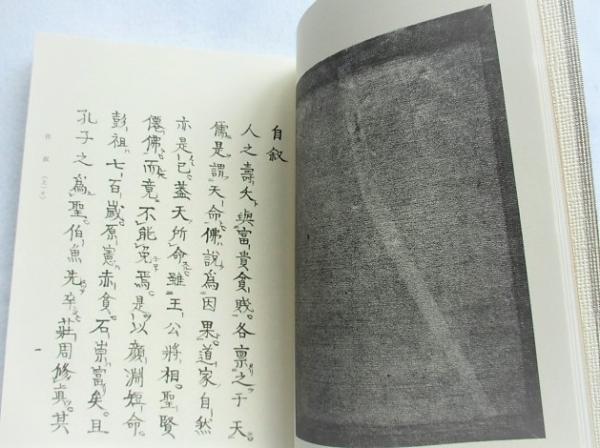 自叙
人之壽夭與富貴貧賤各禀之于天
儒是謂天命佛說爲因果道家自然
亦是已蓋天所命雖王公將相聖賢
僊佛而竟不能免焉是以顏淵短命
彭祖七百歲原憲赤貧石崇富矣且
孔子之爲聖伯魚先卒莊周修真其
自叙
一